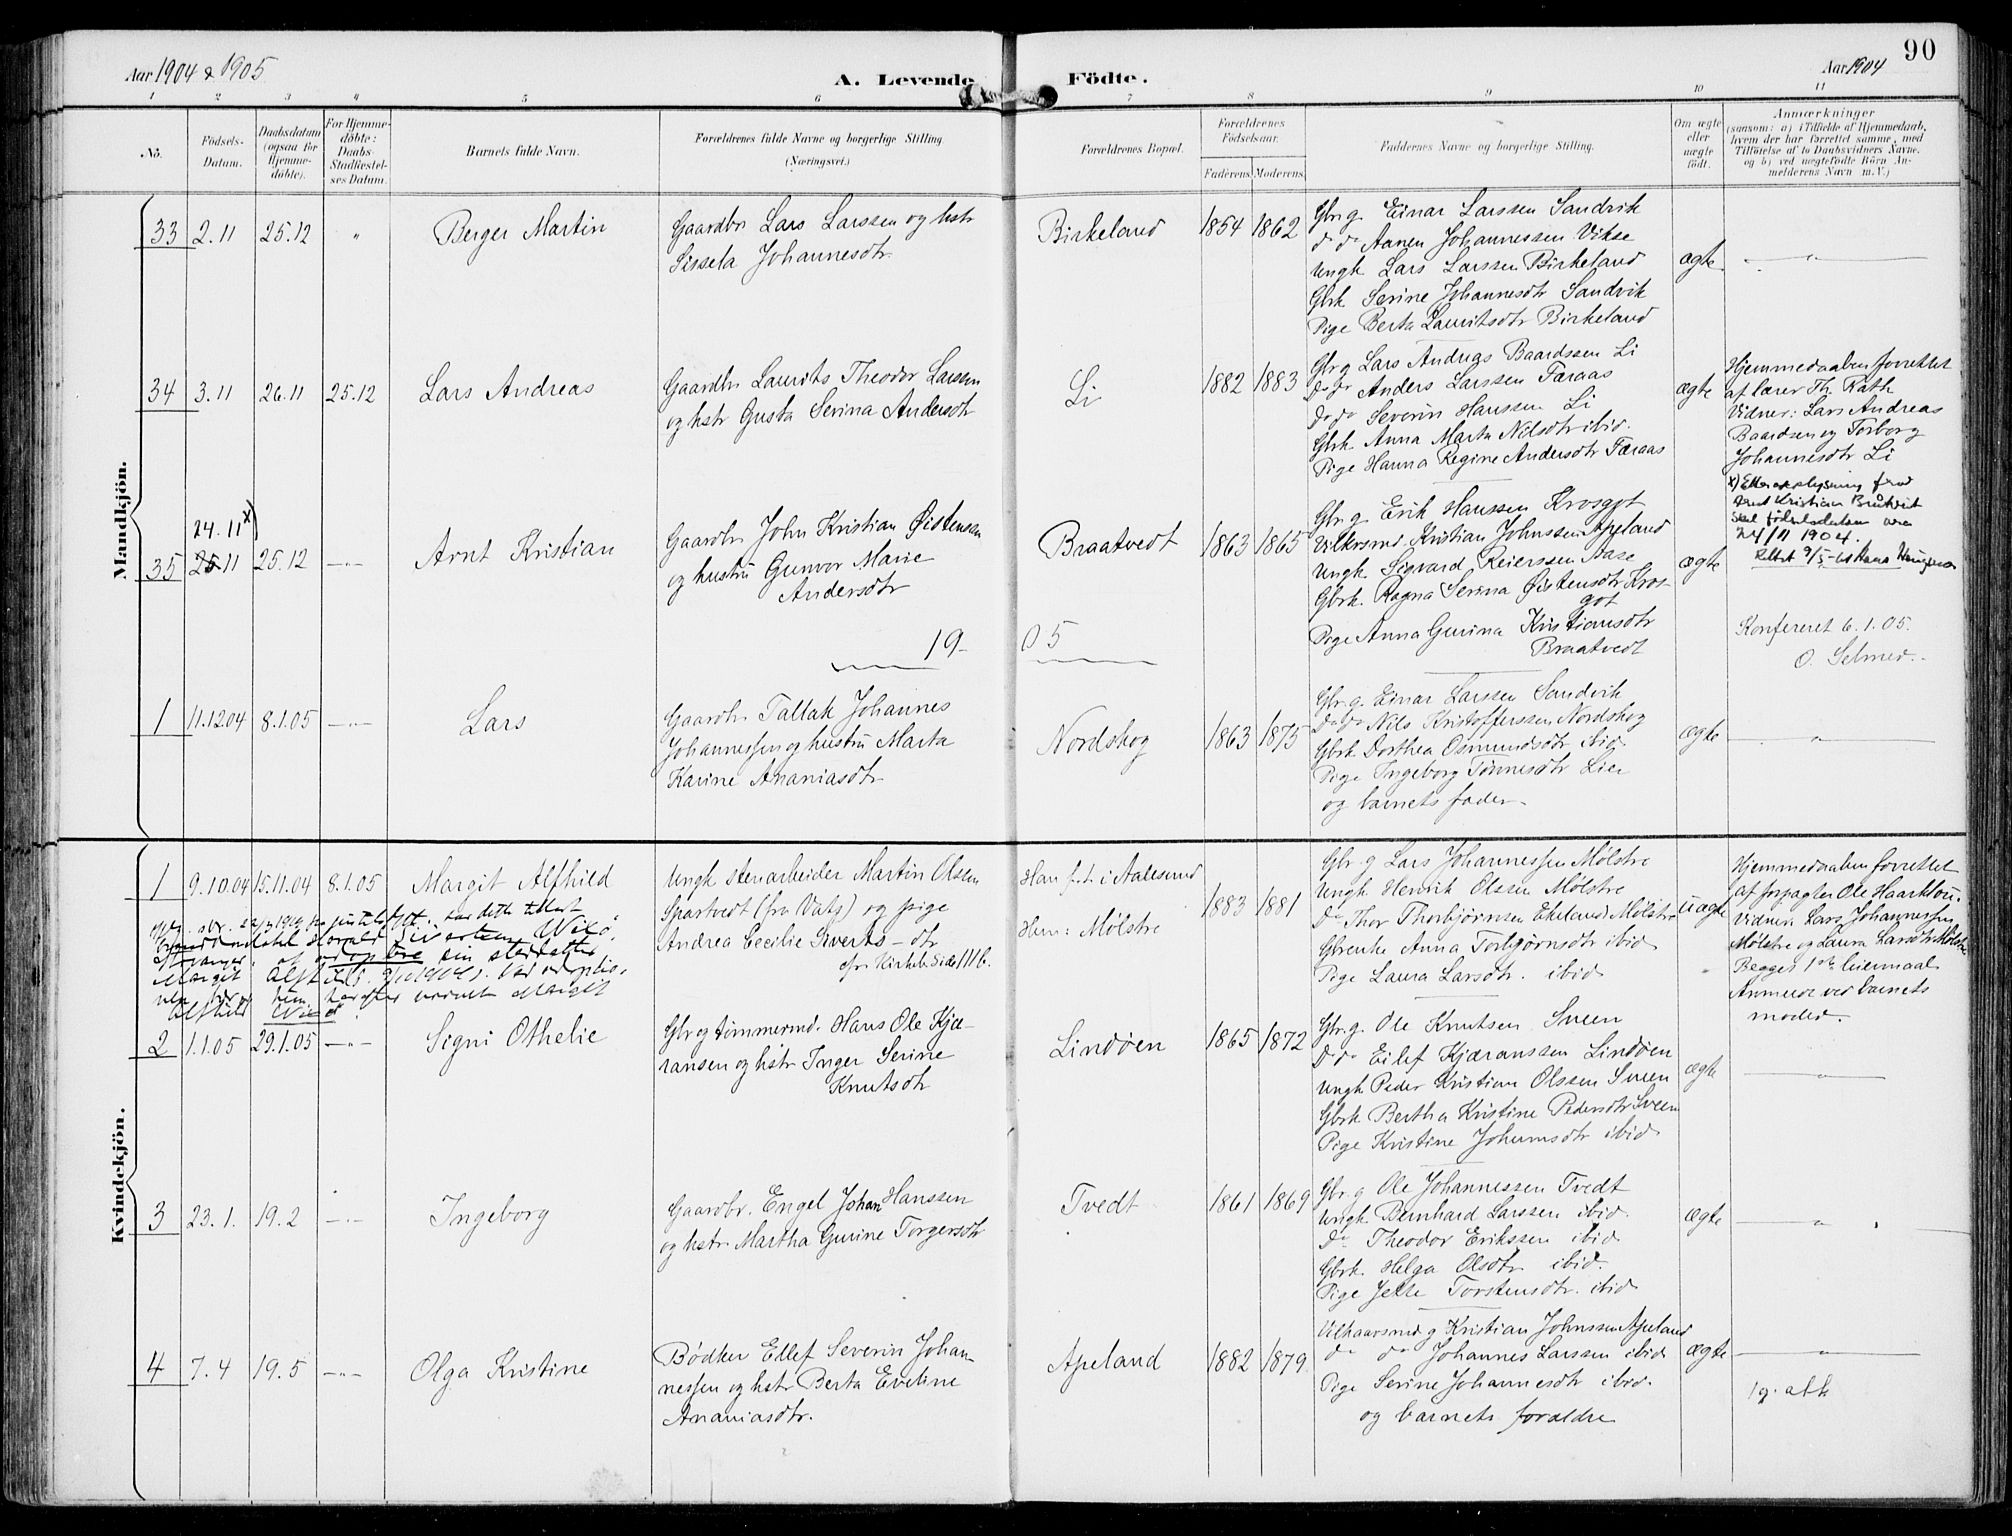 90
Aar 1904 & 1905
A. Levende
Födte.
Aar 1904
1 2 3 4 5 6 7 8 9 10 11
No.
Födsels-
Datum.
Daabsdatum
(ogsaa for
Hjemme-
döbte).
For Hjemme-
döbte:
Daabs-
Stadfæstel-
ses Datum.
Barnets fulde Navn.
Forældrenes fulde Navne og borgerlige Stilling
(Næringsvei.)
Forældrenes Bopæl.
Forældrenes
Födselsaar.
Faderens. Moderens.
Faddernes Navne og borgerlige Stilling.
Om ægte
eller
uægte
födt.
Anmærkninger
(saasom: a) i Tilfælde af Hjemmedaab,
hvem der har forrettet samme, med
Tilföielse af to Daabsvidners Navne,
og b) ved uægtefödte Börn An-
melderens Navn m. V.)
Mandkjön.
33 2.11 25.12 "
Berger Martin
Gaardbr Lars Larssen og hstr
Sissela Johannesdtr
Birkeland
1854 1862
Gbr.g. Einar Larssen Sandvik
do do Aanen Johannessen Vikse
Ungk Lars Larssen Birkeland
Gbrk Serine Johannesdtr Sandvik
Pige Berta Lauritsdtr Birkeland
ægte
"
34 3.11 26.11 25.12
Lars Andreas
Gaardbr Laurits Theodor Larssen
og hstr Gusta Serina Andersdtr
Li
1882 1883
Gbr g Lars Andreas Baardssen Li
Do do Anders Larssen Færaas
Do do Severin Hanssen Li
Gbrk Anna Marta Nilsdtr ibid.
Pige Hanna Regine Andersdtr Færaas
ægte
Hjemmedaaben forrettet
af lærer Th. Rath
Vidner: Lars Andreas
Baardsen og Torborg
Johannesdtr Li
35 24.11 x)
25.11 25.12 -"-
Arnt Kristian
Gaardbr John Kristian Øistensen
og hustru Gunvor Marie
Andersdtr
Braatvedt
1863 1865
Gbr g. Erik Hanssen Krosgot
Vilkrsmd. Kristian Johnssen Apeland
Ungk Sigvard Reierssen Aase
Gbrk. Ragna Serina Øistensdtr Kros-
got
Pige Anna Gurina Kristiansdtr
Braatvedt
ægte
x) Etter opplysning fra
Arnt Kristian
skal fødselsdatoen være
24/11 1904.
Konfereret 6.1.05.
O. Selmer.
19 05
1 11.12.04 8.1.05 -"-
Lars
Gaardbr Tallak Johannes
Johannessen og hustru Marta
Karine Ananiasdtr
Nordskog
1863 1875
Gbr g. Einar Larssen Sandvik
Do do Nils Kristofferssen Nordskog
Gbrk Dorthea Osmundsdtr ibid
Pige Ingeborg Tønnesdtr Lier
og barnets fader.
ægte
"
Kvindekjön.
1 9.10.04 15.11.04 8.1.05
Margit Alfhild
Ungk stenarbeider Martin Olsen
Spartvedt (fra Vats) og pige
Andrea Cecilie Siverts-dtr
cfr. Kirkeb. Side 111 b.
Han f.t. i Aalesund
Hun: Mølstre
1883 1881
Gbr. g Lars Johannessen Mølstre
Ungk Henrik Olssen Mølstre
Do Thor Thorbjørnsen Ekeland Mølstre
Gbrenke Anna Torbjørnsdtr ibid
Pige Laura Larsdtr. ibid
uægte
Hjemmedaaben forrettet
af forpagter Ole Haarklou.
Vidner. Lars Johannessen
Mølstre og Laura Larsdtr Mølstre
Begges 1ste leiermaal
Anmeldr ved barnets
moder.
Margit Alfhild
Margit
Alfhild
2 1.1.05 29.1.05 -"-
Signi Othelie
Gbr og tømmermd. Hans Ole Kjæ-
ransen og hstr Inger Serine
Knutsdtr
Lindøen
1865 1872
Gbr. g. Ole Knutsen Sveen
Do do Eilef Kjæranssen Lindøen
Ungk Peder Kristian Olssen Sveen
Gbrk Bertha Kristine Pedersdtr Sveen
Pige Kristine Johannsdtr ibid
ægte
"
3 23.1. 19.2 -"-
Ingeborg
Gaardbr. Engel Johan Hanssen
og hstr. Martha Gurine Torgersdtr
Tvedt
1861 1869
Gbr. g Ole Johannessen Tvedt
Ungk Bernhard Larssen ibid.
Do Theodor Erikssen ibid
Gbrk. Helga Olsdtr ibid.
Pige Jette Torstensdtr. ibid
ægte
"
4 7.4 19.5 -"-
Olga Kristine
Bødker Ellef Severin Johan-
nessen og hstr Berta Eveline
Ananiasdtr.
Apeland
1882 1879
Vilkaarsmd g Kristian Johnssen Apeland
do do Johannes Larssen ibid
Pige Serine Johannesdtr ibid.
og barnets foraldre
ægte
"